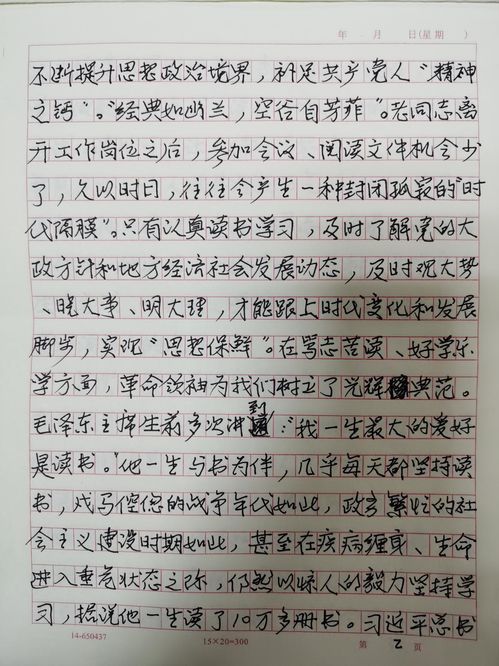 年 月 日(星期 )
不断提升思想政治境界，补足共产党人“精神
之钙”。“经典如幽兰，空谷自芳菲”。老同志离
开工作岗位之后，参加会议、阅读文件机会少
了，久以时日，往往会产生一种封闭孤寂的“时
代隔膜”。只有认真读书学习，及时了解党的大
政方针和地方经济社会发展动态，及时观大势
、晓大事、明大理，才能跟上时代变化和发展
脚步，实现“思想保鲜”。在笃志苦读、好学乐
学方面，革命领袖为我们树立了光辉典范。
毛泽东主席生前多次讲到：“我一生最大的爱好
是读书。”他一生与书为伴，几乎每天都坚持读
书，戎马倥偬的战争年代如此，政务繁忙的社
会主义建设时期如此，甚至在疾病缠身、生命
进入垂危状态之际，仍然以惊人的毅力坚持学
习，据说他一生读了10万多册书。习近平总书
14-650437 15×20=300 第 2 页